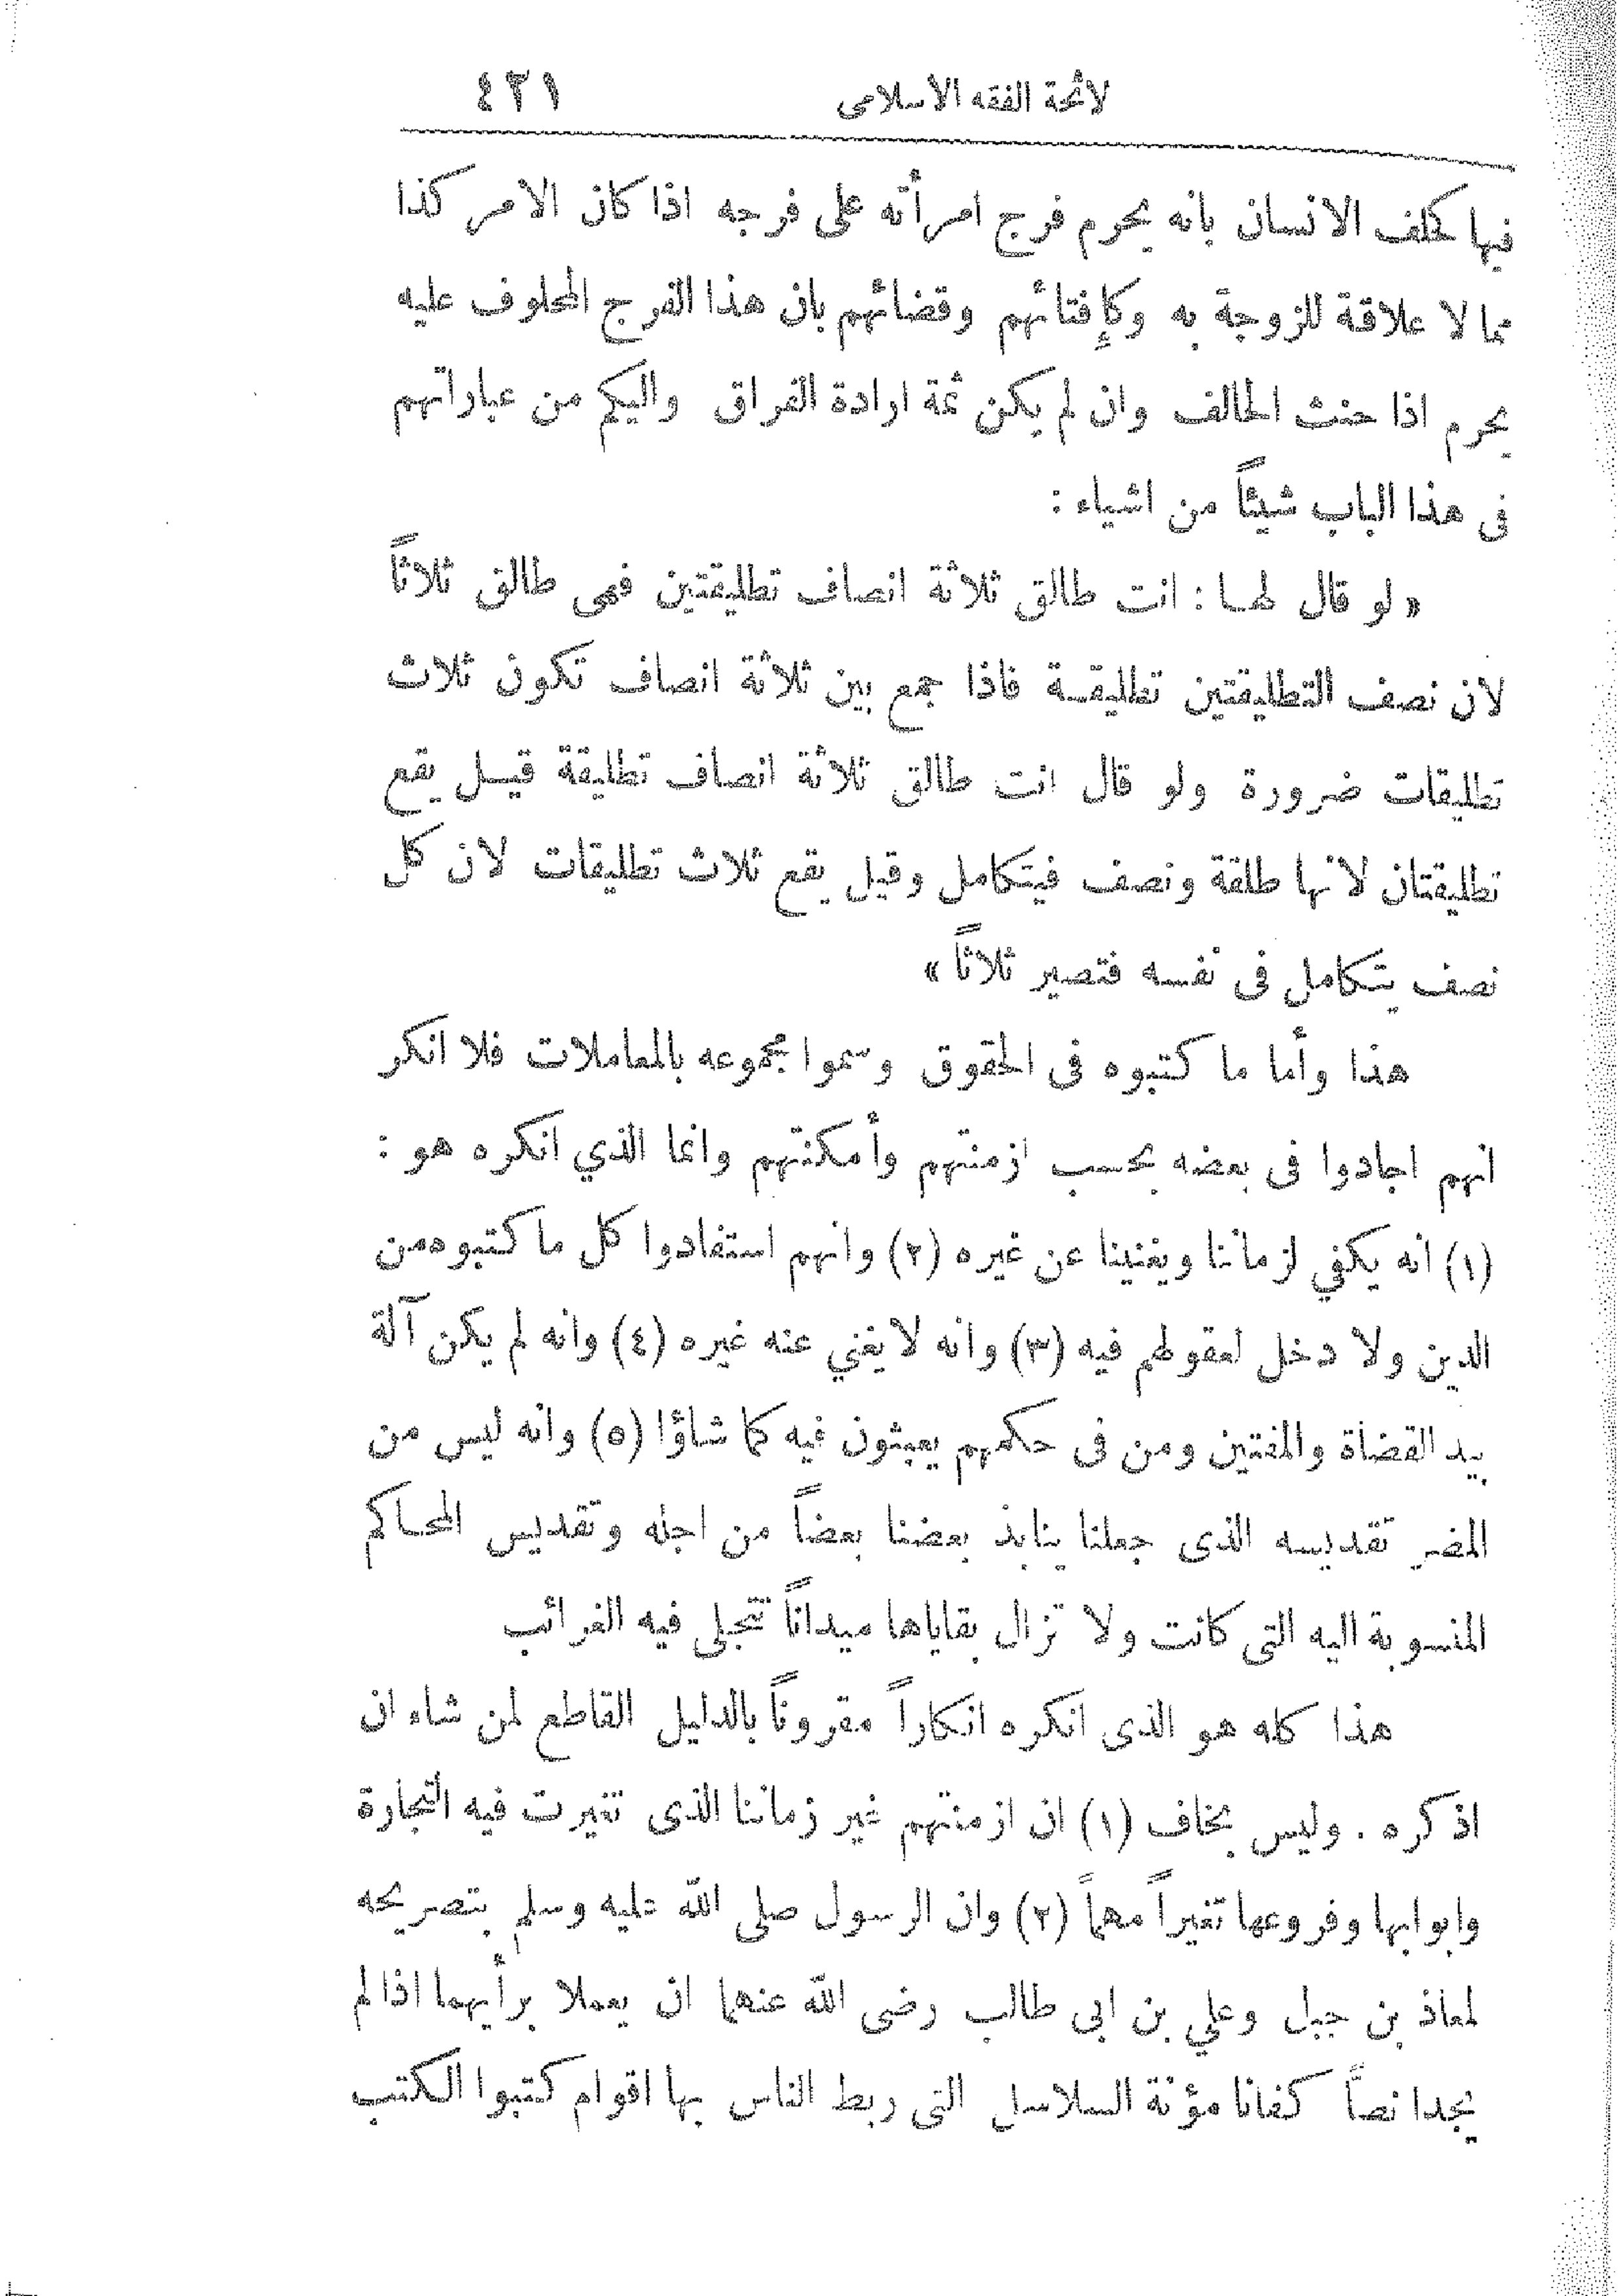 لائحة الفقه الاسلامى ٤٢١
فيها كحلف الانسان بانه يحرم فرج امرأته على فرجه اذا كان الامر كذا
مما لا علاقة للزوجة به وكإفتائهم وقضائهم بان هذا الفرج المحلوف عليه
يحرم اذا حنث الحالف وان لم يكن ثمة ارادة الفراق واليكم من عباراتهم
فى هذا الباب شيئاً من اشياء :
« لو قال لها : انت طالق ثلاثة انصاف تطليقتين فهى طالق ثلاثاً
لان نصف التطليقتين تطليقة فاذا جمع بين ثلاثة انصاف تكون ثلاث
تطليقات ضرورة ولو قال انت طالق ثلاثة انصاف تطليقة قيل يقع
تطليقتان لانها طلقة ونصف فيتكامل وقيل يقع ثلاث تطليقات لان كل
نصف يتكامل فى نفسه فتصير ثلاثاً »
هذا وأما ما كتبوه فى الحقوق وسموا مجموعه بالمعاملات فلا انكر
انهم اجادوا فى بعضه بحسب ازمنتهم وأمكنتهم وانما الذي انكره هو :
(١) انه يكفي لزماننا ويغنينا عن غيره (٢) وانهم استفادوا كل ما كتبوه من
الدين ولا دخل لعقولهم فيه (٣) وانه لا يغني عنه غيره (٤) وانه لم يكن آلة
بيد القضاة والمفتين ومن فى حكمهم يعبثون فيه كما شاؤا (٥) وانه ليس من
المضر تقديسه الذى جعلنا ينابذ بعضنا بعضاً من اجله وتقديس المحاكم
المنسوبة اليه التى كانت ولا تزال بقاياها ميداناً تتجلى فيه الغرائب
هذا كله هو الذى انكره انكاراً مقروناً بالدليل القاطع لمن شاء ان
اذكره . وليس بخاف (١) ان ازمنتهم غير زماننا الذى تغيرت فيه التجارة
وابوابها وفروعها تغيراً مهماً (٢) وان الرسول صلى الله عليه وسلم بتصريحه
لمعاذ بن جبل وعلي بن ابى طالب رضى الله عنهما ان يعملا برأيهما اذا لم
يجدا نصاً كفانا مؤنة السلاسل التى ربط الناس بها اقوام كتبوا الكتب